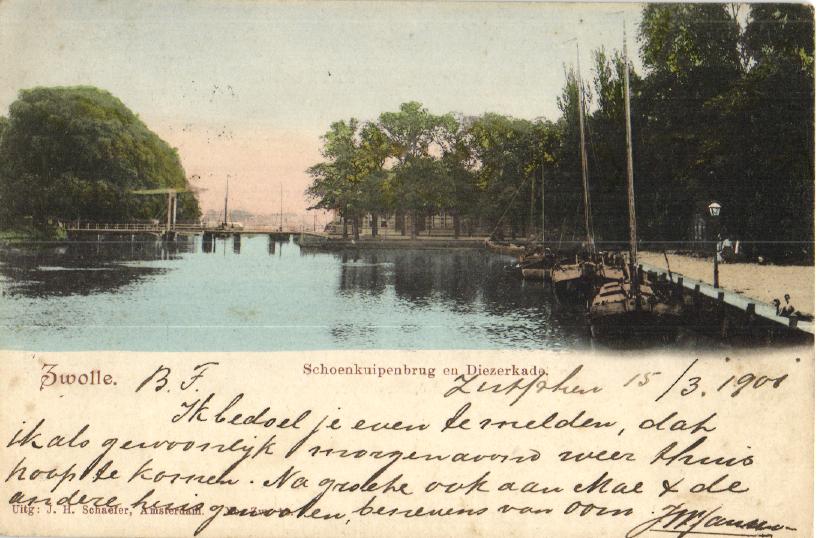 Zwolle.
Schoenkuipenbrug en Diezerkade.
B. F.
Zutphen 15/3. 1901
Ik bedoel je even te melden, dat
ik als gewoonlijk morgenavond weer thuis
hoop te komen. Na groete ook aan Mae & de
andere huisgenooten, besievens van Oom.
Uitg: J. H. Schaefer, Amsterdam.